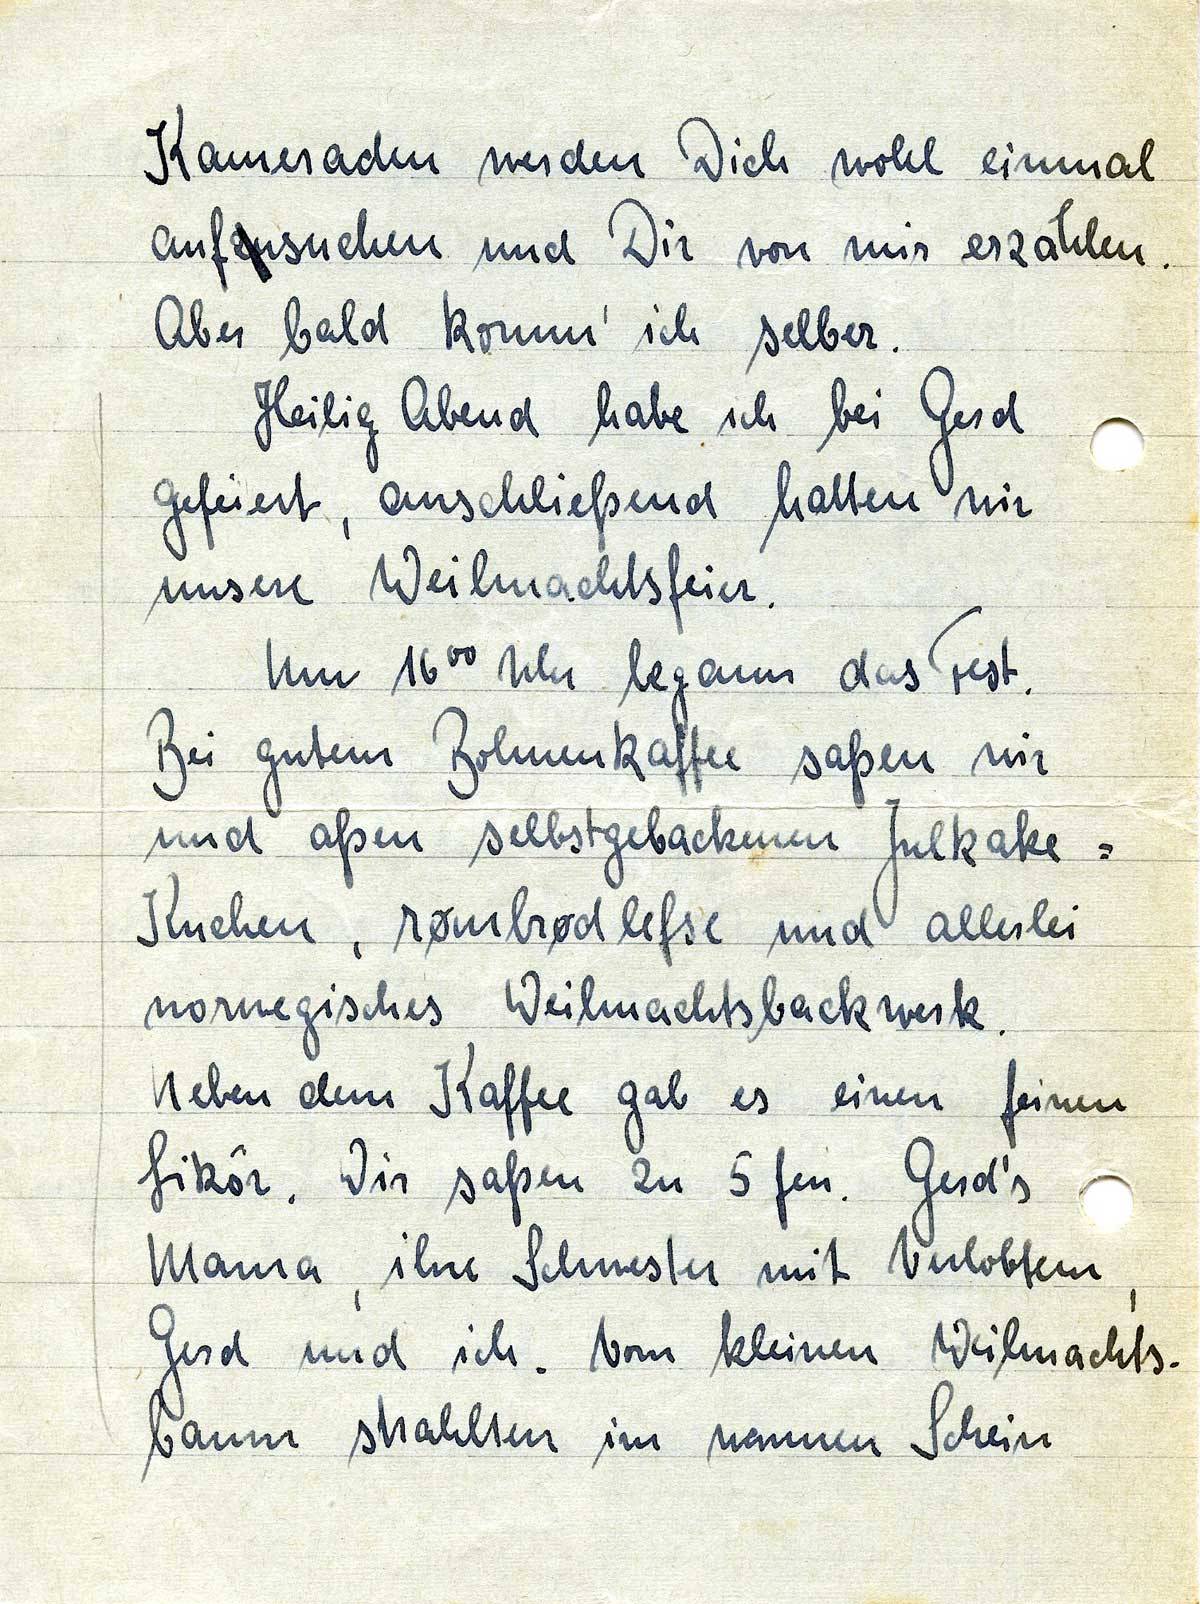 Kameraden werden Dich wohl einmal
aufsuchen und Dir von mir erzählen.
Aber bald komm' ich selber.
Heilig Abend habe ich bei Gerd
gefeiert, anschließend hatten wir
unsere Weihnachtsfeier.
Um 16⁰⁰ Uhr begann das Fest.
Bei gutem Bohnenkaffee saßen wir
und aßen selbstgebackenen Julkake =
Kuchen, rømbrød lefse und allerlei
norwegisches Weihnachtsbackwerk.
Neben dem Kaffee gab es einen feinen
Likör. Wir saßen zu 5 fen. Gerd's
Mama, ihre Schwester mit Verlobtem,
Gerd und ich. Vom kleinen Weihnachts-
baum strahlten im warmen Schein